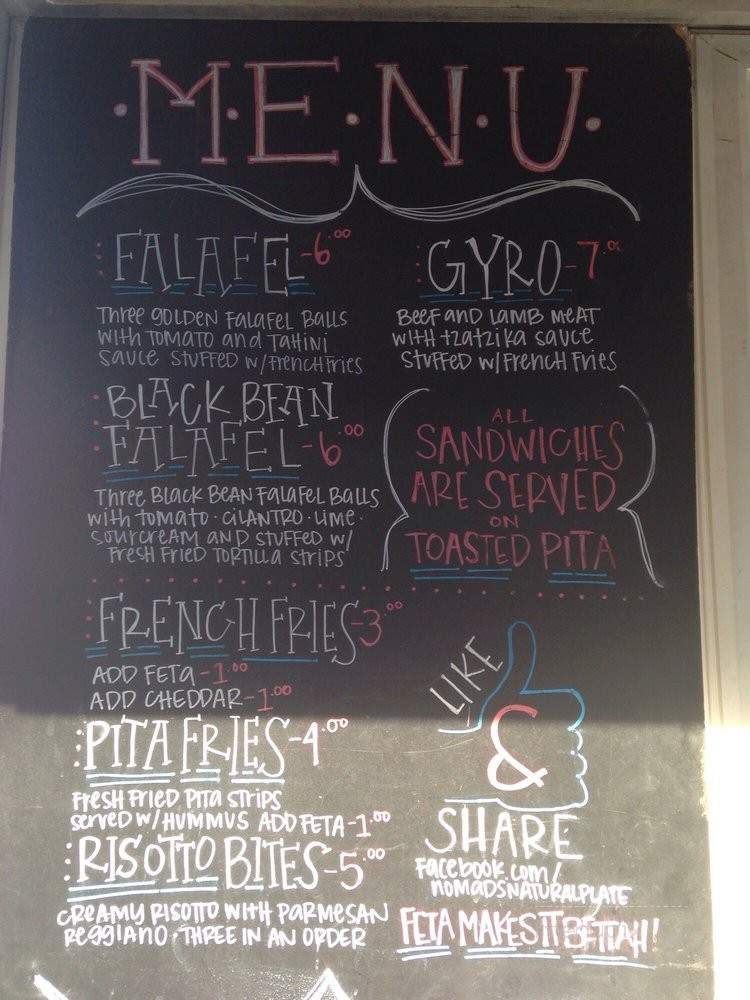 ·M·E·N·U·
FALAFEL-6.00
Three golden falafel balls
with tomato and tahini
sauce stuffed w/French fries
BLACK BEAN
FALAFEL-6.00
Three black bean falafel balls
with tomato · cilantro · lime ·
sourcream and stuffed w/
fresh fried tortilla strips
GYRO-7.00
Beef and lamb meat
with tzatzika sauce
stuffed w/French fries
ALL
SANDWICHES
ARE SERVED
ON
TOASTED PITA
FRENCH FRIES-3.00
ADD FETA-1.00
ADD CHEDDAR-1.00
PITA FRIES-4.00
Fresh fried pita strips
served w/HUMMUS ADD FETA-1.00
RISOTTO BITES-5.00
creamy risotto with parmesan
reggiano · three in an order
LIKE
&
SHARE
Facebook.com/
nomadsnaturalplate
FETA MAKES IT BETTAH!